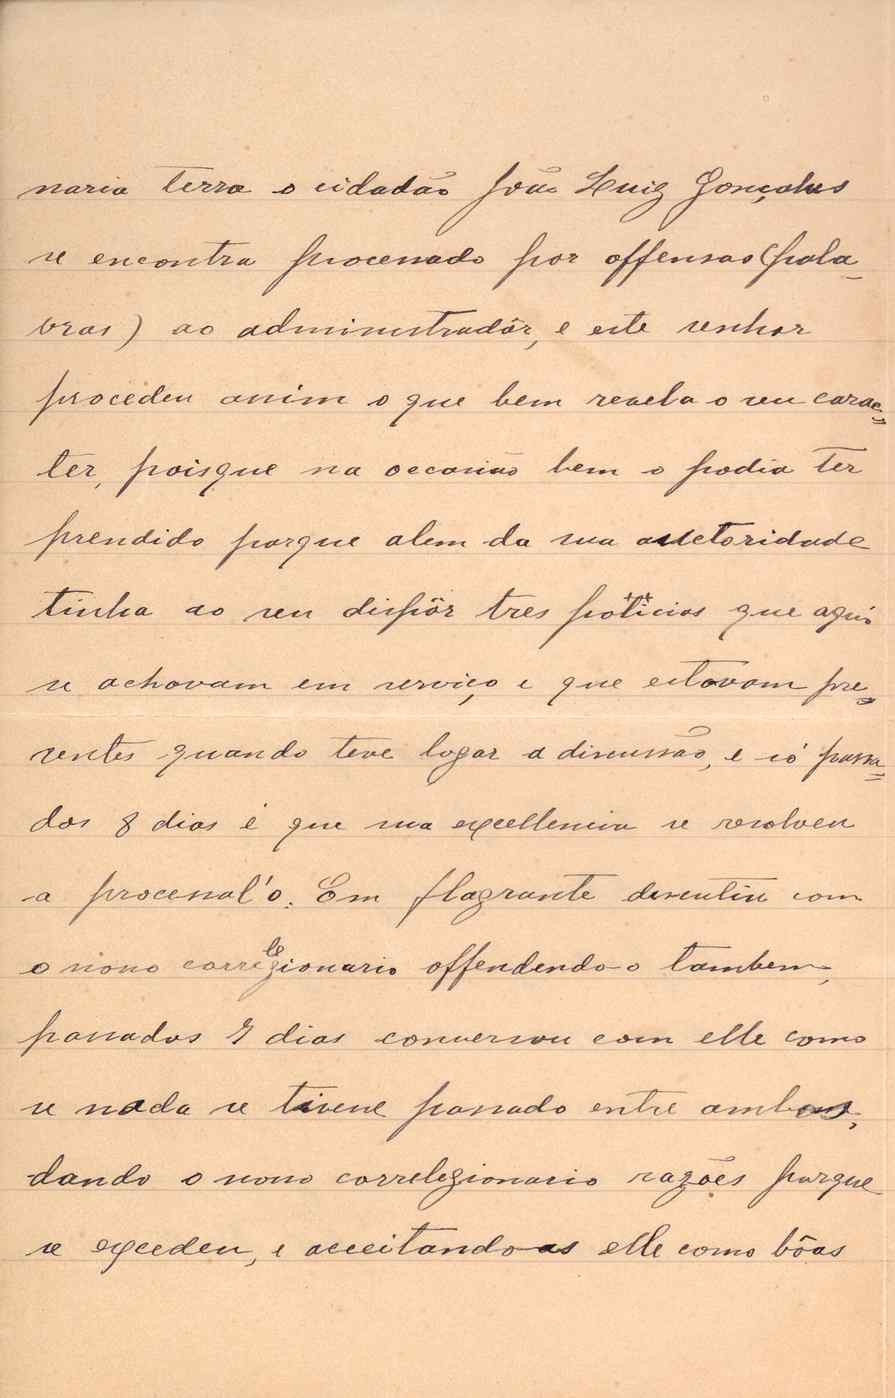 naria terra o cidadão João Luiz Gonçalves
se encontra processado por offensas (pala-
vras) ao administradôr, e este senhor
procedeu assim o que bem revela o seu carac=
ter, poisque na occasião bem o podia ter
prendido porque alem da sua auctoridade
tinha ao seu dispôr tres policias que aqui
se achavam em serviço e que estavam pre=
sentes quando teve logar a discussão, e só passa=
dos 8 dias é que sua excellencia se resolveu
a processal'o. Em flagrante descutiu com
o nosso correlezionario offendendo-o tambem,
passados 8 dias conversou com elle como
se nada se tivesse passado entre ambos,
dando o nosso correlezionario razões porque
se excedeu, e acceitando-as elle como bôas